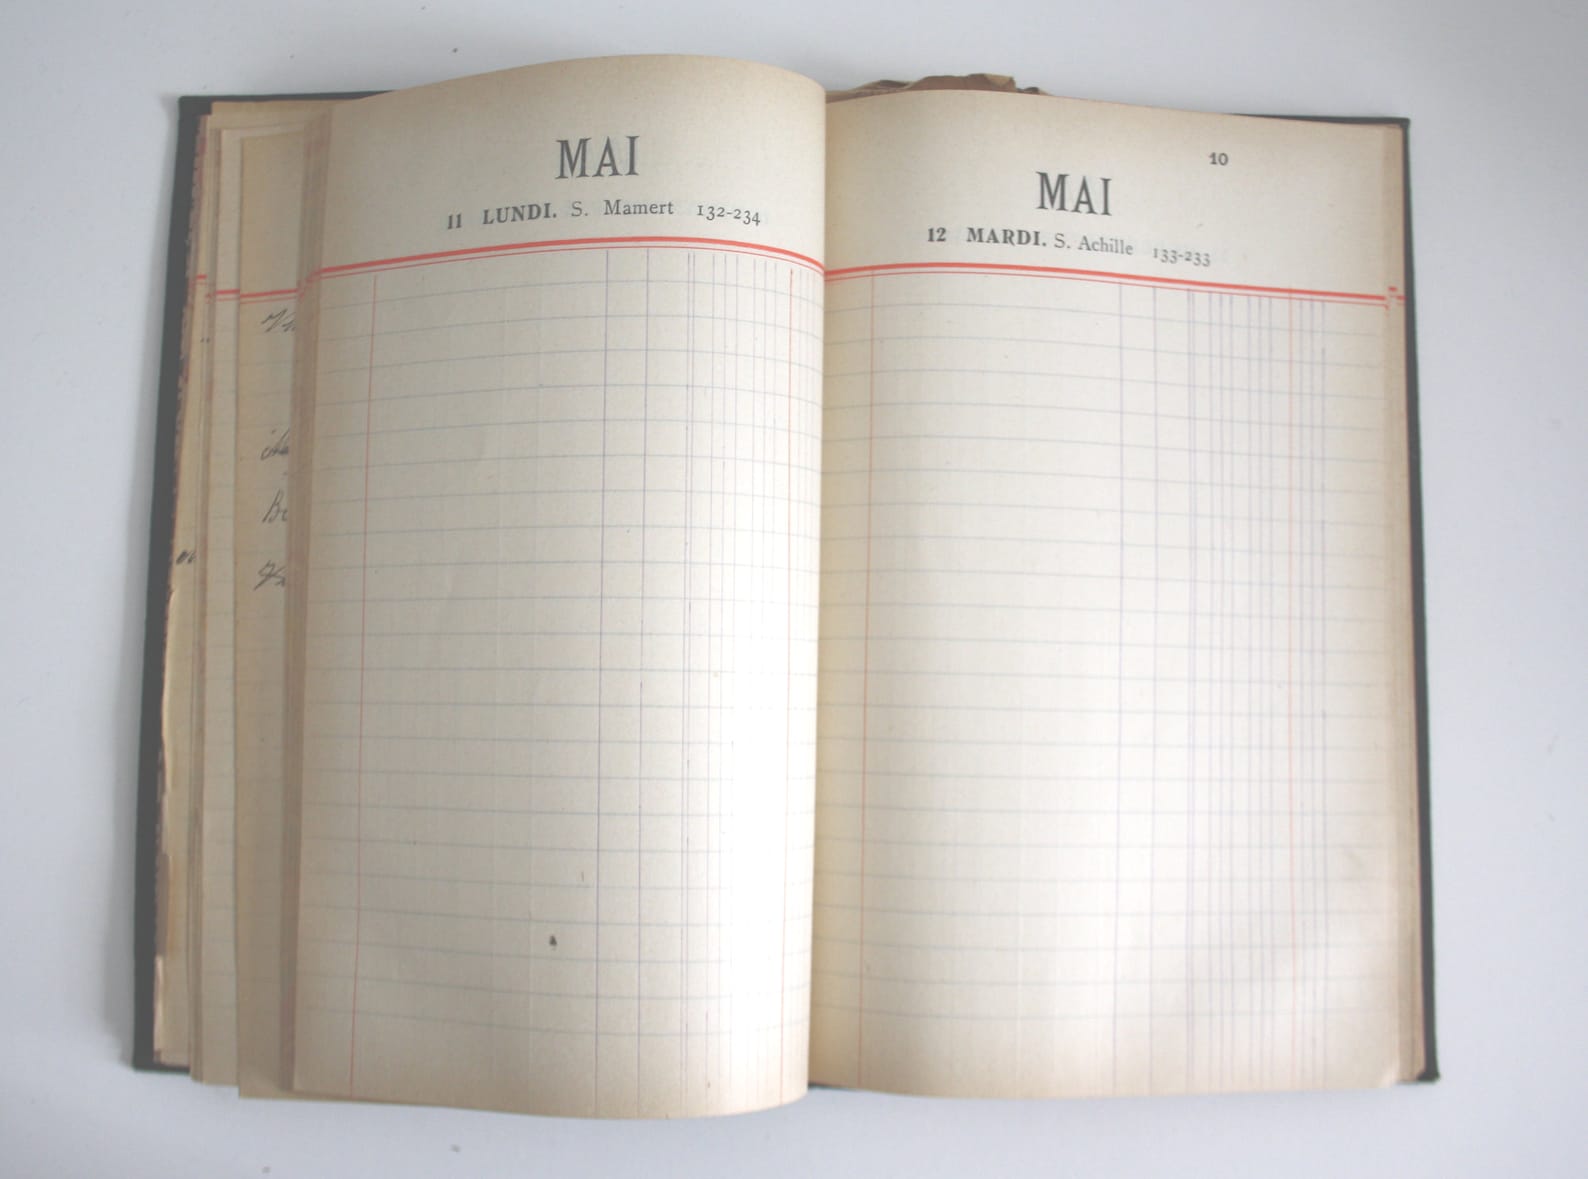 MAI
11 LUNDI. S. Mamert 132-234
10
MAI
12 MARDI. S. Achille 133-233